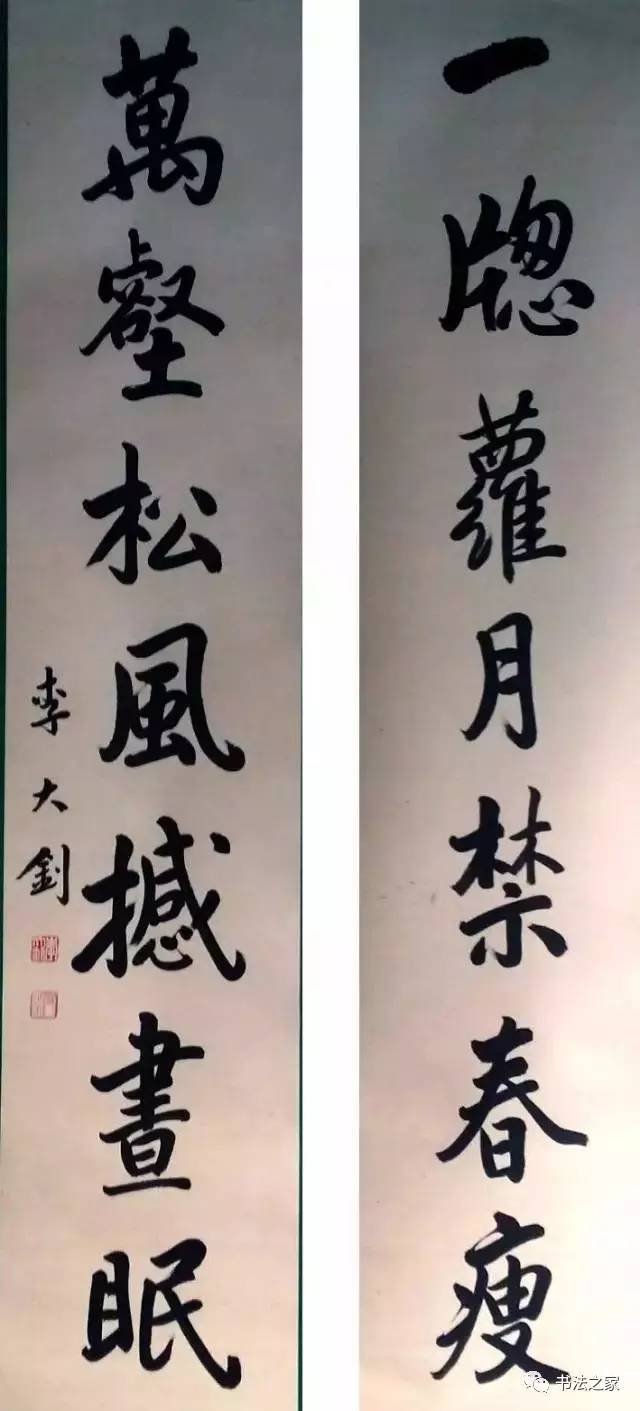 一牎蘿月禁春瘦
萬壑松風撼晝眠
李大釗
书法之家